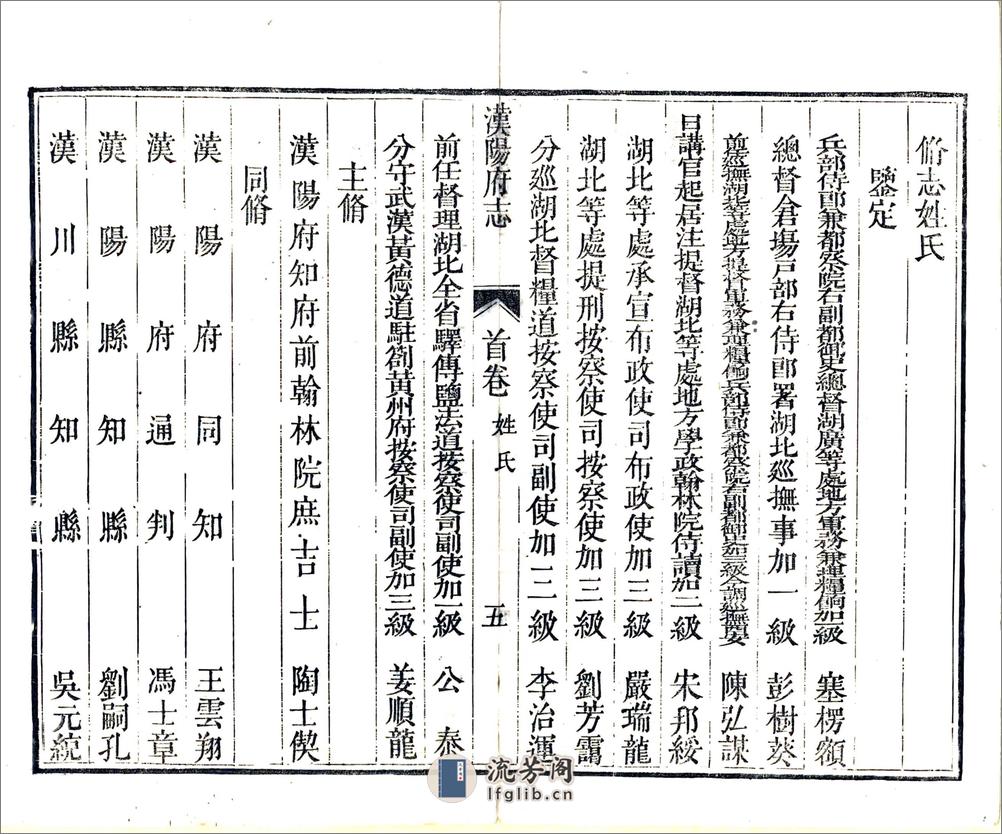 脩志姓氏
鑒定
兵部侍郎兼都察院右副都御史總督湖廣等處地方軍務兼理糧餉加一級 塞楞額
總督倉場戸部右侍郎署湖北巡撫事加一級 彭樹葵
前巡撫湖北等處地方提督軍務兼理糧餉兵部侍郎兼都察院右副都御史加三級今調巡撫 陳弘謀
日講官起居注提督湖北等處地方學政翰林院侍讀加二級 宋邦綏
湖北等處承宣布政使司布政使加二級 嚴瑞龍
湖北等處提刑按察使司按察使加三級 劉芳靄
分巡湖北督糧道按察使司副使加二級 李治運
漢陽府志 首卷 姓氏 五
前任督理湖北全省驛傳鹽法道按察使司副使加一級 公泰
分守武漢黃德道駐劄黃州府按察使司副使加三級 姜順龍
主脩
漢陽府知府前翰林院庶吉士 陶士偰
同脩
漢陽府同知 王雲翔
漢陽府通判 馮士章
漢陽縣知縣 劉嗣孔
漢川縣知縣 吳元統
流芳阁
lfglib.cn